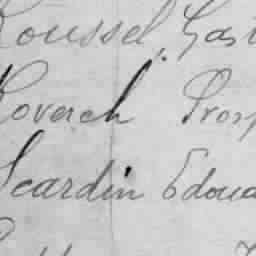 Roussel, Gast
Roverch Prosp
Scardin Edoua